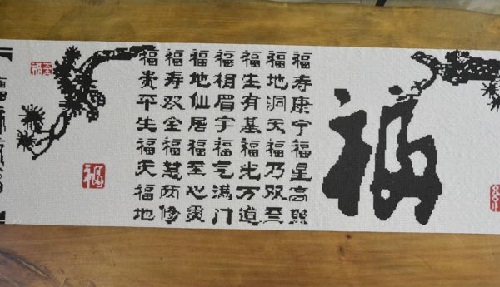 福
福寿康宁福星高照
福地洞天福乃双至
福生有基福光万道
福相眉宇福气满门
福地仙居福至心灵
福寿双全福慧两修
福贵平生福天福地
福